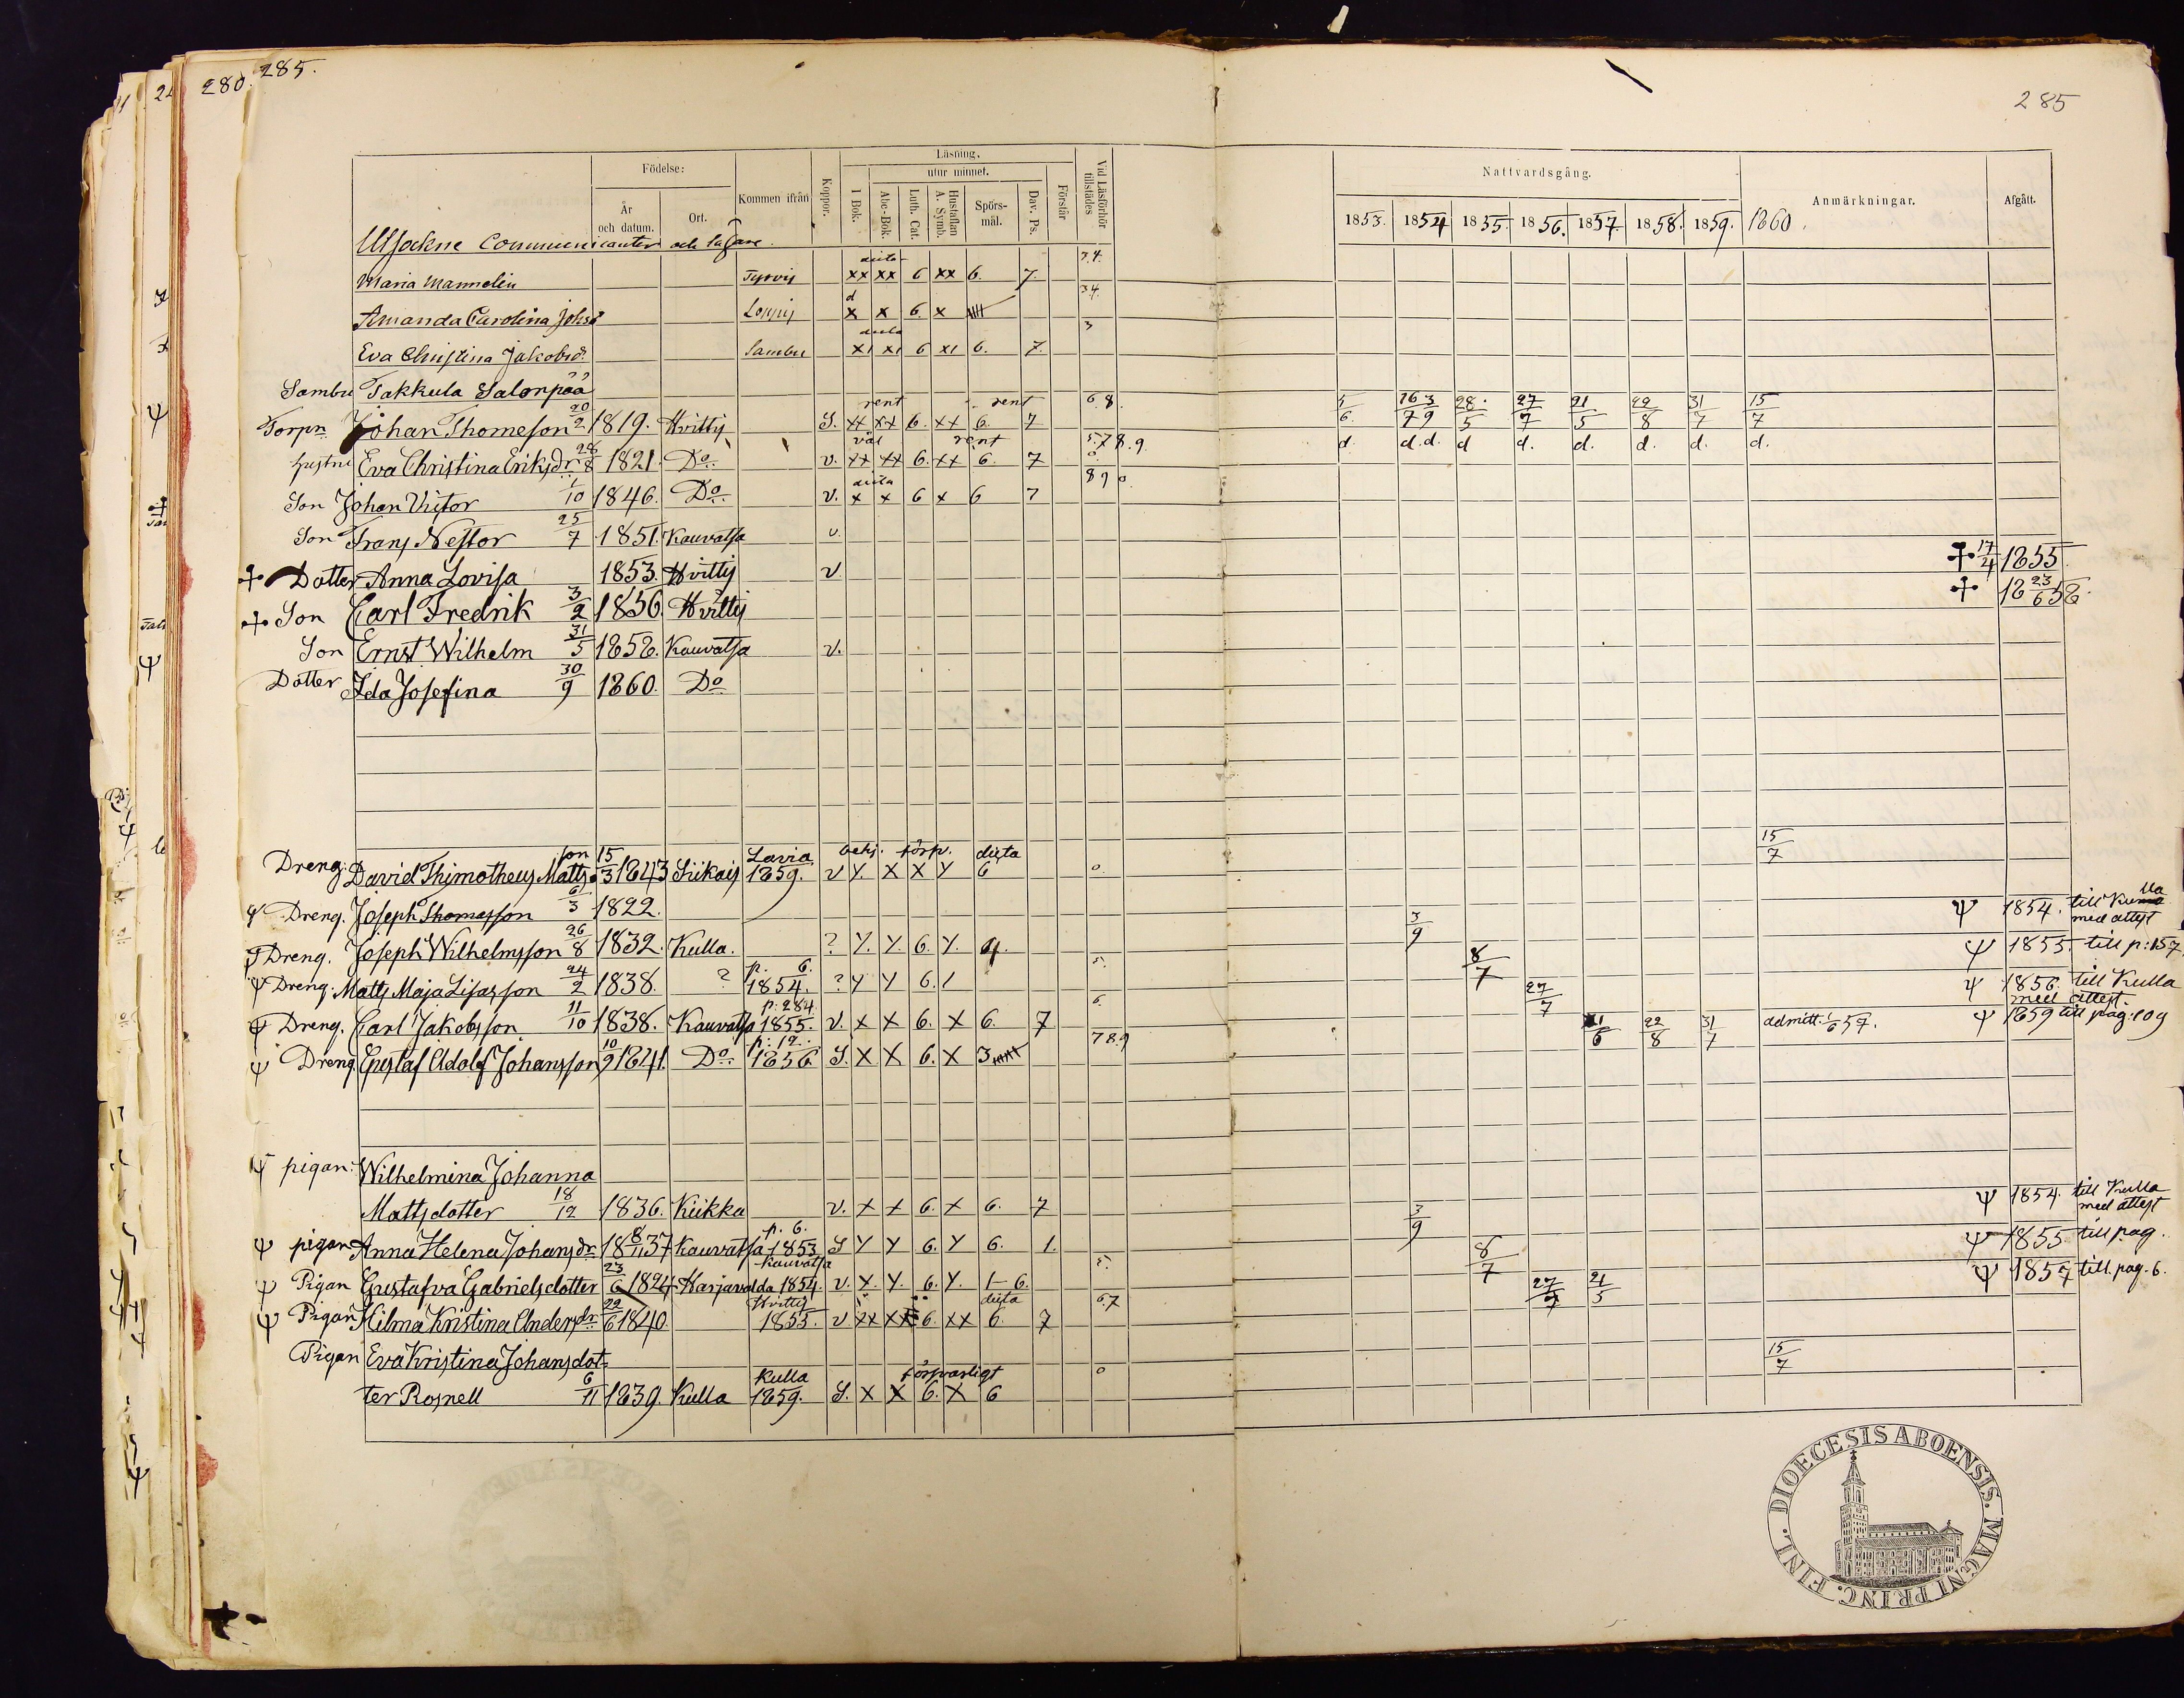 280. 285.
285
Födelse: Kommen ifrån Koppor. Läsning. Förstår Vid Läsförhör tillstädes
År och datum. Ort. I Bok. utur minnet.
Abc-Bok. Luth. Cat. Hustaflan A. Symb. Spörs-mål. Dav. Ps.
Nattvardsgång. Anmärkningar. Afgått.
1853. 1854 1855. 1856. 1857 1858. 1859. 1860.
Communicanter och
Maria Mannelin xx xx 6 xx 6. 7
Amanda Carolina x x 6. x
Eva Christina Jakobsd. Sambu 6 6. 7.
Sambu Takkula Salonpää
Torpn Johan Thomeson 20/2 1819. Hvittis S. xx xx 6. xx 6. 7 rent rent 6.8. 5/6 28/5 27/7 21/5 22/8 31/7 15/7
hustru Eva Christina Eriksdr 1821. Do. v. xx xx 6. xx 6. 7 väl rent d. d.d. d d. d. d. d. d.
Son Johan Victor 1/10 1846. Do. v. x x 6 x 6 7 8 9 0
Son Frans Nestor 25/7 1851. Kauvatsa v.
Dotter Anna Lovisa 1853. Hvittis v 17/4 1855.
Son Carl Fredrik 3/2 1856. Hvittis 18 23/6 58.
Son Ernst Wilhelm 31/5 1858. Kauvatsa v.
Dotter Ida Josefina 30/9 1860. Do
Dreng. David Thimotheus Matts son 15/3 1843 Siikais Lavia 1859. v y. x x y 6 0. 15/7
Dreng. Joseph Thomasson 1822. 3/9 ψ 1854. till Kulla med attest
Dreng. Joseph Wilhelmsson 26/8 1832. Kulla. ? y. y. 6. y. 4. 5. 8/7 ψ 1855. till p: 157
ψ Dreng. Matts Maja Lisasson 24/2 1838. ? p. 6. 1854. ? y y 6. 1 27/7 ψ 1856. till Kulla med attest.
ψ Dreng. Carl Jakobsson 11/10 1838. Kauvatsa p: 284 1855. v. x x 6. x 6. 7 6. 22/8 31/7 admitt. 1/6 57. ψ 1859 till pag: 109
ψ Dreng. Gustaf Adolf Johansson 10/9 1841. Do. p: 12. 1856. S. x x 6. x 3 7 8.9
ψ pigan: Wilhelmina Johanna
Mattsdotter 18/12 1836. Kiikka v. x x 6. x 6. 7 3/9 ψ 1854. till Kulla med attest
ψ pigan Anna Helena Johansdr. 8/11 1837 Kauvatsa p. 6. 1853 S y y 6. y 6. 1. 8/7 ψ 1855. till pag.
ψ Pigan Gustafva Gabrielsdotter 23/6 1824 Harjavalda Kauvatsa 1854. v. x. y. 6. y. 1-6. 21/5 ψ 1857 till pag. 6.
ψ Pigan Hilma Kristina Andersdr 22/6 1840 Hvittis 1855. v xx 6. xx 6. 7 6.7
Pigan Eva Kristina Johansdot-
ter Rosnell 6/11 1839. Kulla Kulla 1859. S. x x 6. x 6 försvarligt 0 15/7
DIOECESIS ABOENSIS. MAGNI PRINC. FINL.